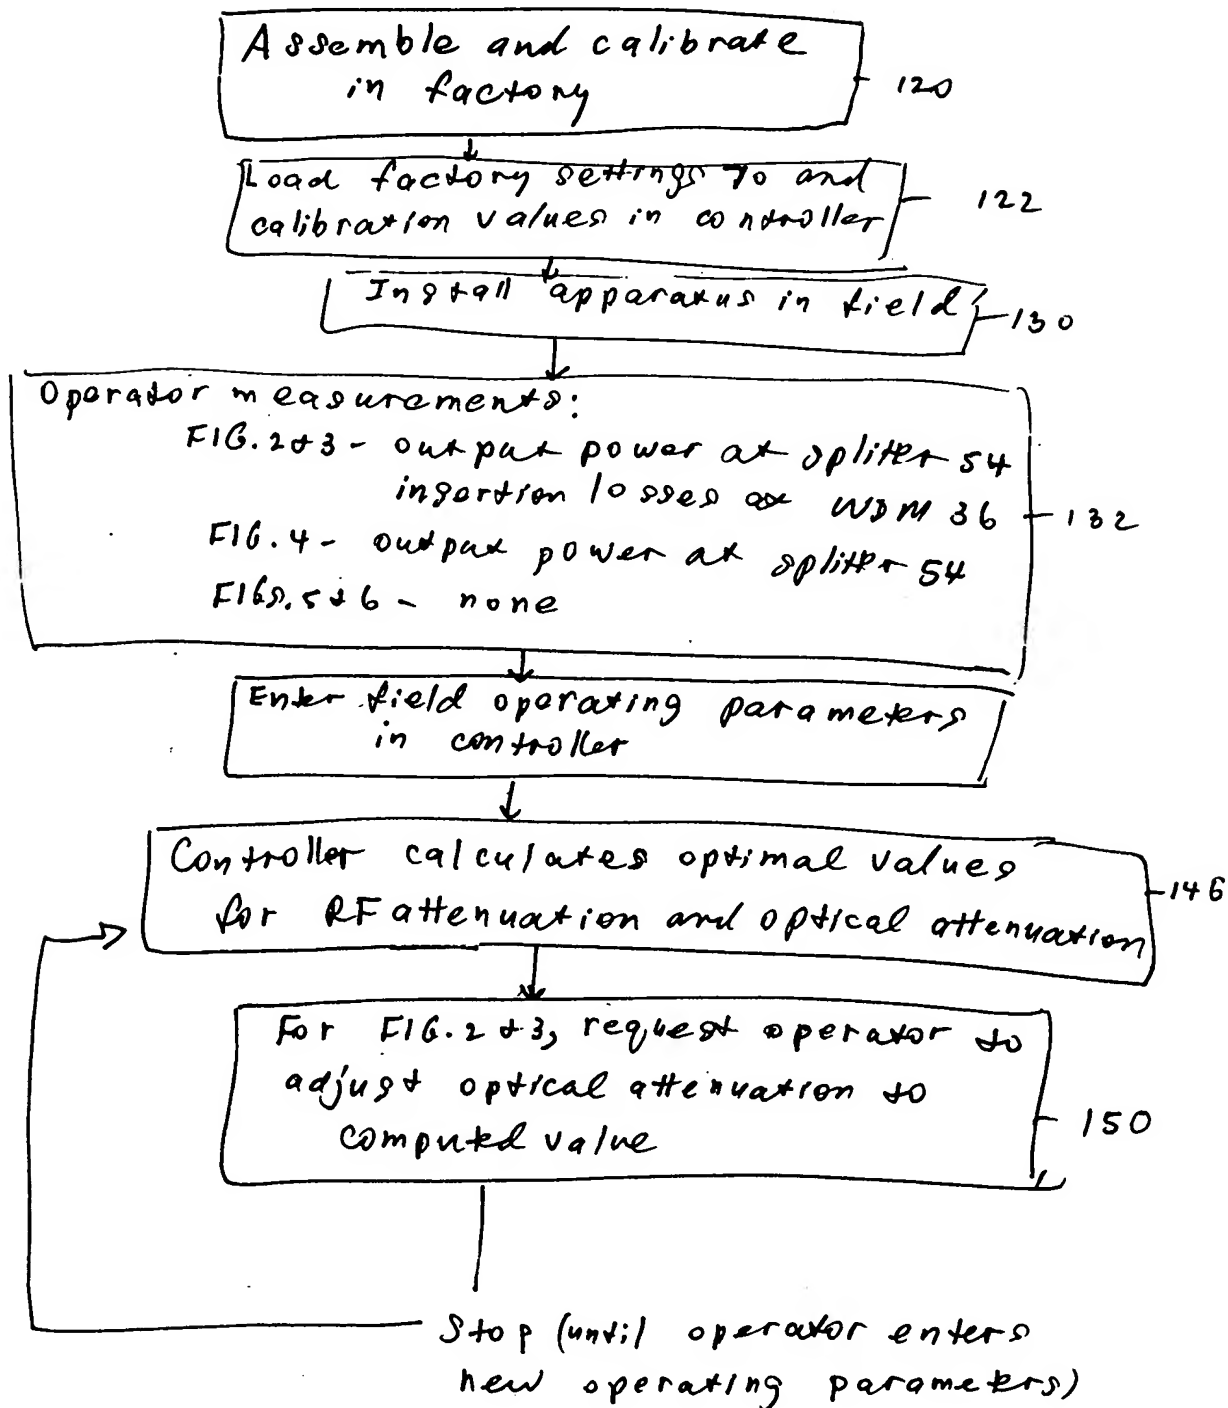 Assemble and calibrate
in factory
120
Load factory settings to and
calibration values in controller
122
Install apparatus in field
130
Operator measurements:
FIG. 2+3 - output power at splitter 54
insertion losses at WDM 36
132
FIG. 4 - output power at splitter 54
FIGs. 5+6 - none
Enter field operating parameters
in controller
Controller calculates optimal values
for RF attenuation and optical attenuation
146
For FIG. 2+3, request operator to
adjust optical attenuation to
computed value
150
Stop (until operator enters
new operating parameters)